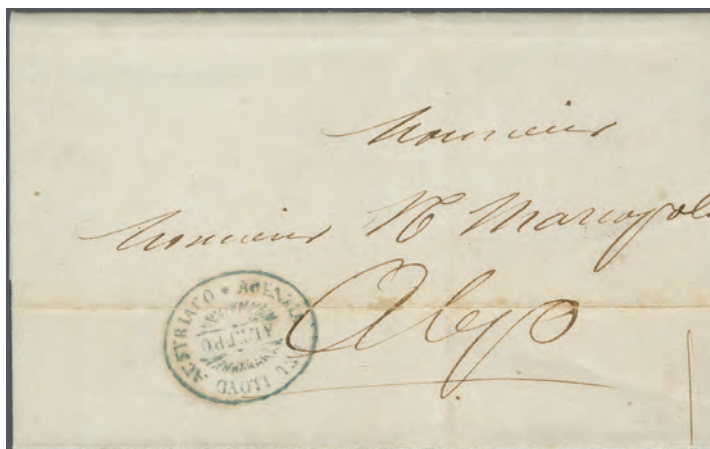 Monsieur
Monsieur N Marcopoli
Alep
AGENZIA DEL LLOYD AUSTRIACO
ALEPPO